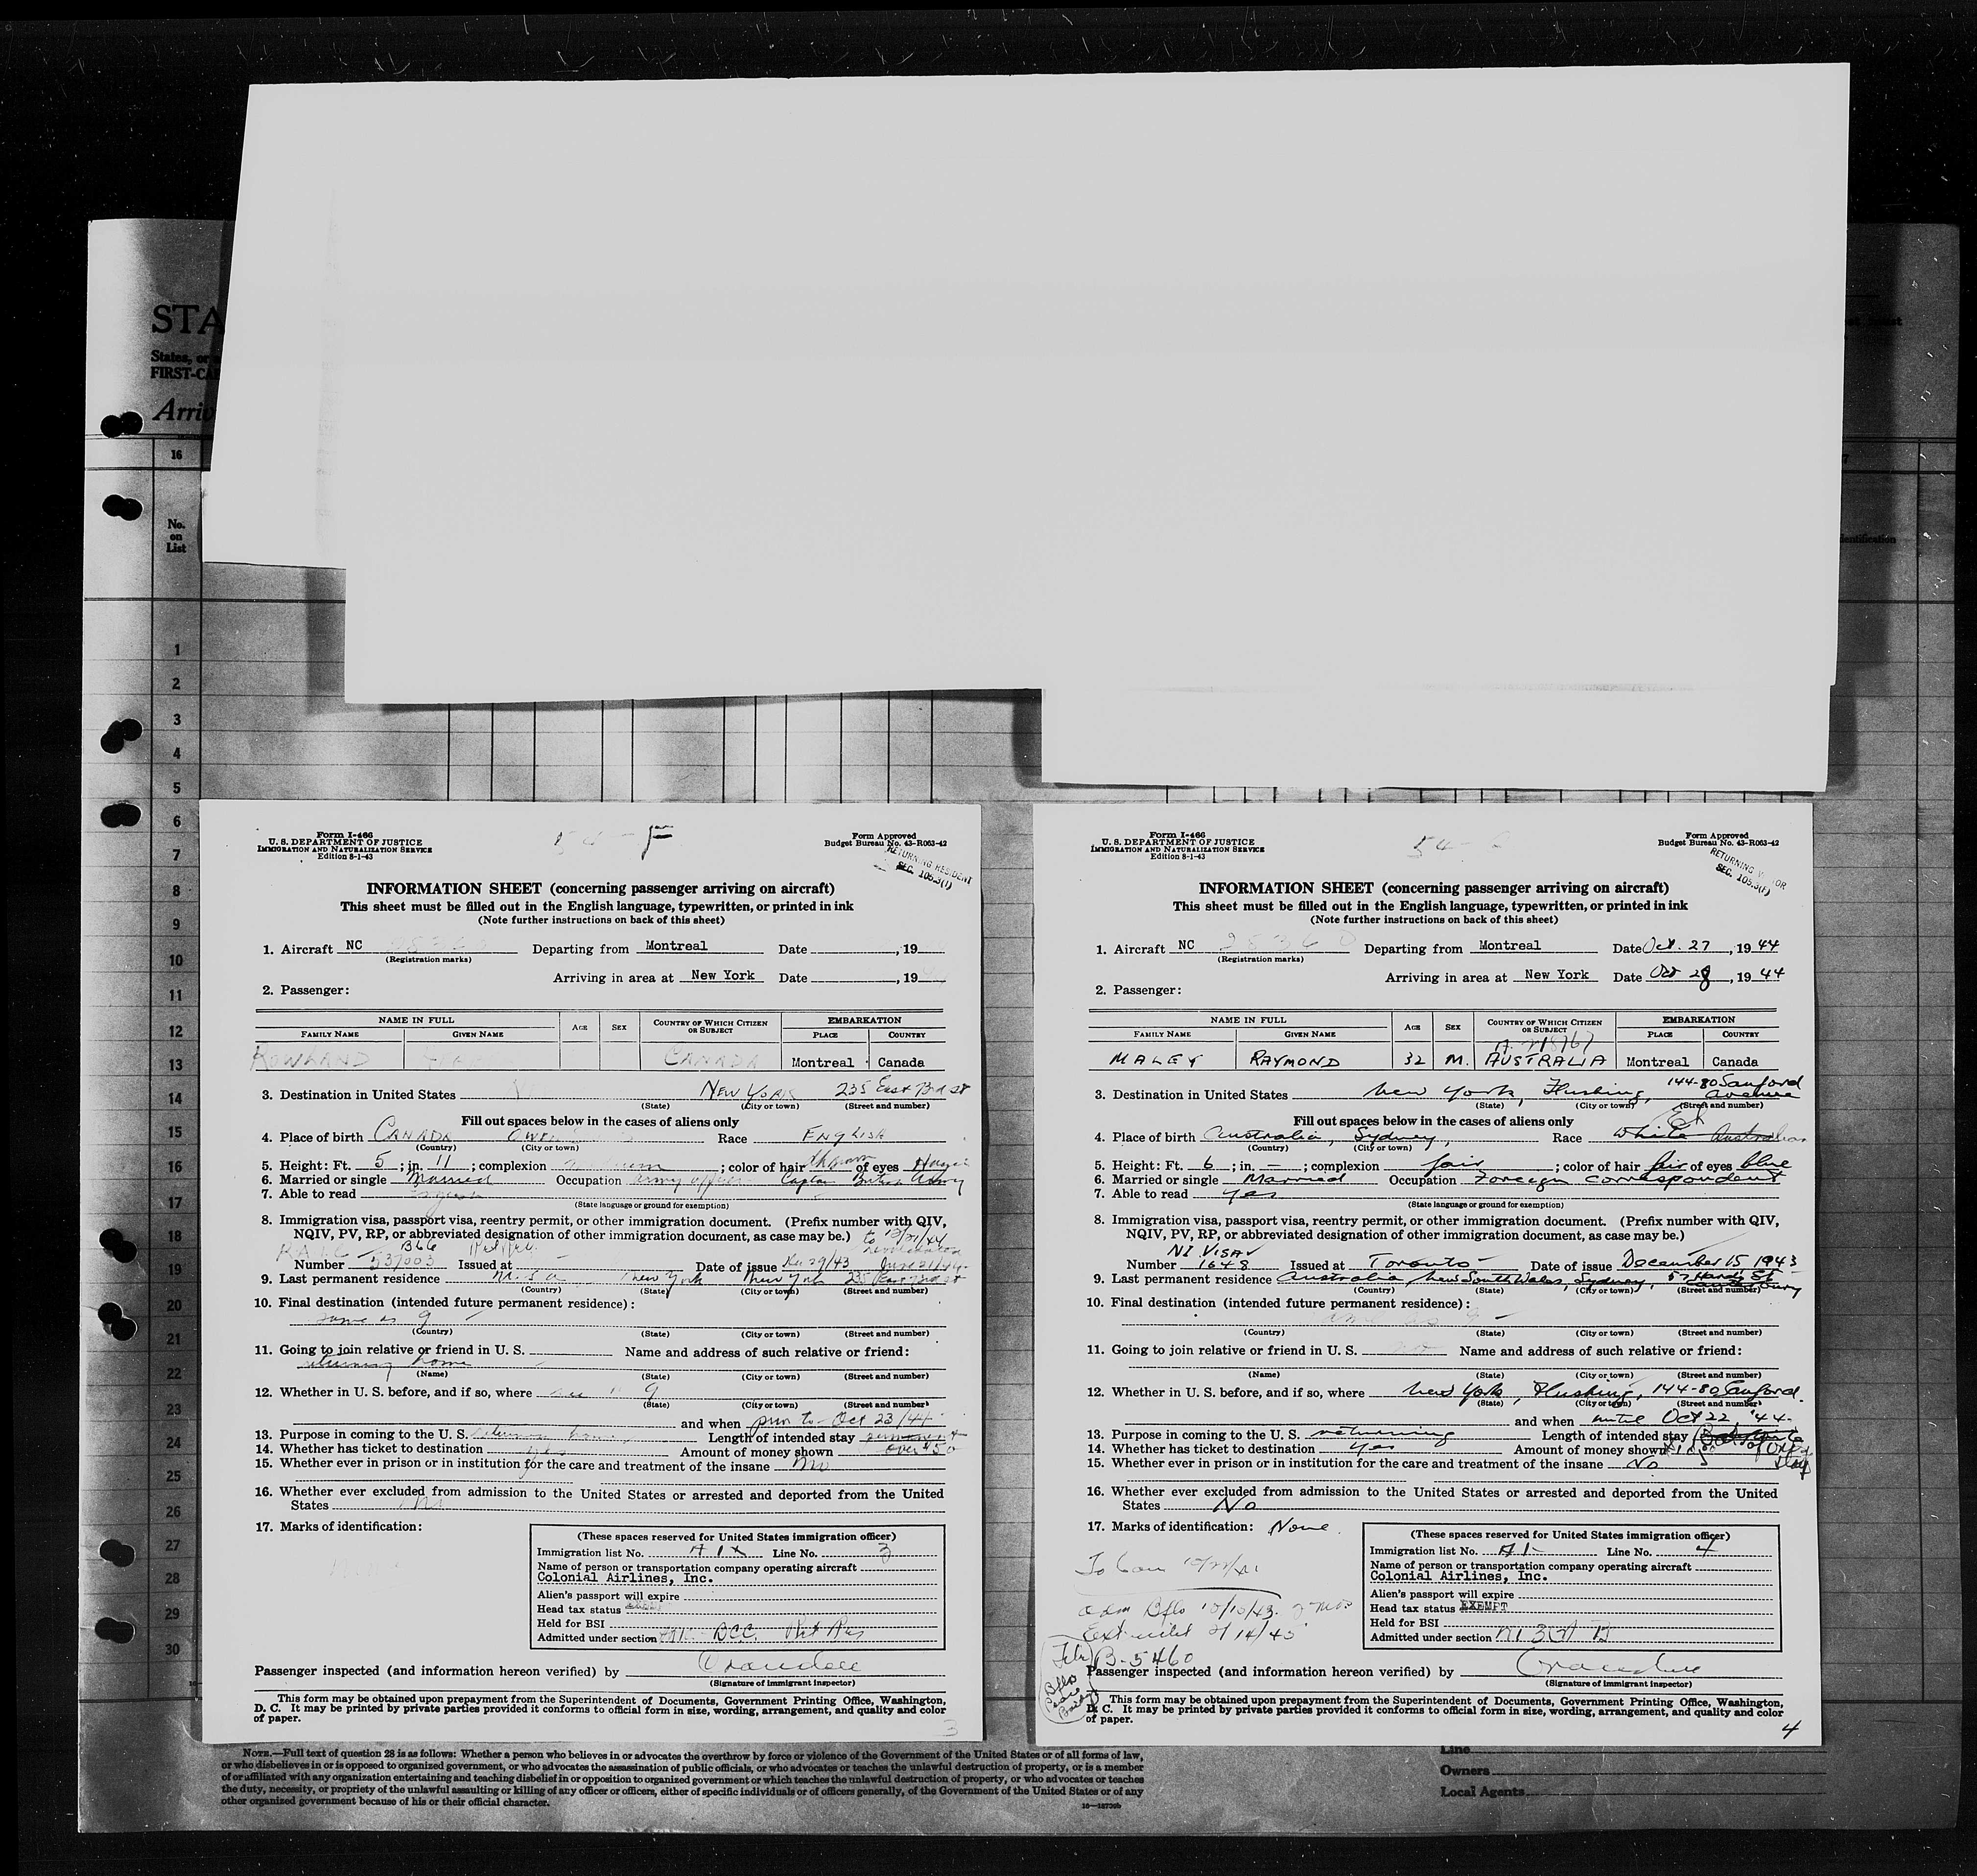 STA
States, or
FIRST-CA
Arriv
16
No.
on
List
entification
1
2
3
4
5
6
7
8
9
10
11
12
13
14
15
16
17
18
19
20
21
22
23
24
25
26
27
28
29
30
Form I-466
U. S. DEPARTMENT OF JUSTICE
IMMIGRATION AND NATURALIZATION SERVICE
Edition 8-1-43
54-F
Form Approved
Budget Bureau No. 43-R063-42
RETURNING RESIDENT
SEC. 105.3(1)
INFORMATION SHEET (concerning passenger arriving on aircraft)
This sheet must be filled out in the English language, typewritten, or printed in ink
(Note further instructions on back of this sheet)
1. Aircraft NC Departing from Montreal Date , 19
(Registration marks)
Arriving in area at New York Date , 19
2. Passenger:
NAME IN FULL AGE SEX COUNTRY OF WHICH CITIZEN OR SUBJECT EMBARKATION
FAMILY NAME GIVEN NAME PLACE COUNTRY
ROWLAND CANADA Montreal Canada
3. Destination in United States NEW YORK 235 East 73rd St
(State) (City or town) (Street and number)
Fill out spaces below in the cases of aliens only
4. Place of birth CANADA OWEN Race ENGLISH
(Country) (City or town)
5. Height: Ft. 5; in. 11; complexion medium; color of hair of eyes Hazel
6. Married or single Married Occupation army officer Captain British Army
7. Able to read English
(State language or ground for exemption)
8. Immigration visa, passport visa, reentry permit, or other immigration document. (Prefix number with QIV,
NQIV, PV, RP, or abbreviated designation of other immigration document, as case may be.)
B66
Number 537003 Issued at Date of issue Dec 29/43
9. Last permanent residence U.S.A New York New York 235 East 73rd St
(Country) (State) (City or town) (Street and number)
10. Final destination (intended future permanent residence):
same as 9
(Country) (State) (City or town) (Street and number)
11. Going to join relative or friend in U. S. Name and address of such relative or friend:
returning home
(Name) (State) (City or town) (Street and number)
12. Whether in U. S. before, and if so, where see 9
(State) (City or town) (Street and number)
and when prior to Oct 23/44
13. Purpose in coming to the U. S. returning home Length of intended stay permanent
14. Whether has ticket to destination yes Amount of money shown over $50
15. Whether ever in prison or in institution for the care and treatment of the insane No
16. Whether ever excluded from admission to the United States or arrested and deported from the United
States No
17. Marks of identification:
(These spaces reserved for United States immigration officer)
Immigration list No. A1X Line No. 3
Name of person or transportation company operating aircraft
Colonial Airlines, Inc.
Alien's passport will expire
Head tax status
Held for BSI
Admitted under section BCC Ret Res
Passenger inspected (and information hereon verified) by Crandell
(Signature of immigrant inspector)
This form may be obtained upon prepayment from the Superintendent of Documents, Government Printing Office, Washington,
D. C. It may be printed by private parties provided it conforms to official form in size, wording, arrangement, and quality and color
of paper.
3
Form I-466
U. S. DEPARTMENT OF JUSTICE
IMMIGRATION AND NATURALIZATION SERVICE
Edition 8-1-43
54-
Form Approved
Budget Bureau No. 43-R063-42
RETURNING VISITOR
SEC. 105.3(F)
INFORMATION SHEET (concerning passenger arriving on aircraft)
This sheet must be filled out in the English language, typewritten, or printed in ink
(Note further instructions on back of this sheet)
1. Aircraft NC 28360 Departing from Montreal Date Oct. 27, 1944
(Registration marks)
Arriving in area at New York Date Oct 28, 1944
2. Passenger:
NAME IN FULL AGE SEX COUNTRY OF WHICH CITIZEN OR SUBJECT EMBARKATION
FAMILY NAME GIVEN NAME PLACE COUNTRY
MALEY RAYMOND 32 M. AUSTRALIA Montreal Canada
3. Destination in United States New York, Flushing, 144-80 Sanford Avenue
(State) (City or town) (Street and number)
Fill out spaces below in the cases of aliens only
4. Place of birth Australia, Sydney, Race White Australian
(Country) (City or town)
5. Height: Ft. 6; in. –; complexion fair; color of hair fair of eyes blue
6. Married or single Married Occupation Foreign correspondent
7. Able to read yes
(State language or ground for exemption)
8. Immigration visa, passport visa, reentry permit, or other immigration document. (Prefix number with QIV,
NQIV, PV, RP, or abbreviated designation of other immigration document, as case may be.)
NI VISA
Number 1648 Issued at Toronto Date of issue December 15 1943
9. Last permanent residence Australia, New South Wales, Sydney, 57 Hardy St Canterbury
(Country) (State) (City or town) (Street and number)
10. Final destination (intended future permanent residence):
same as 9
(Country) (State) (City or town) (Street and number)
11. Going to join relative or friend in U. S. no Name and address of such relative or friend:
(Name) (State) (City or town) (Street and number)
12. Whether in U. S. before, and if so, where New York, Flushing, 144-80 Sanford
(State) (City or town) (Street and number)
and when until Oct 22, '44
13. Purpose in coming to the U. S. returning Length of intended stay
14. Whether has ticket to destination yes Amount of money shown
15. Whether ever in prison or in institution for the care and treatment of the insane No
16. Whether ever excluded from admission to the United States or arrested and deported from the United
States No
17. Marks of identification: None.
(These spaces reserved for United States immigration officer)
Immigration list No. A1 Line No. 4
Name of person or transportation company operating aircraft
Colonial Airlines, Inc.
Alien's passport will expire
Head tax status EXEMPT
Held for BSI
Admitted under section
Adm Bflo
B-5460
Passenger inspected (and information hereon verified) by Crandell
(Signature of immigrant inspector)
This form may be obtained upon prepayment from the Superintendent of Documents, Government Printing Office, Washington,
D. C. It may be printed by private parties provided it conforms to official form in size, wording, arrangement, and quality and color
of paper.
4
NOTE.—Full text of question 28 is as follows: Whether a person who believes in or advocates the overthrow by force or violence of the Government of the United States or of all forms of law,
or who disbelieves in or is opposed to organized government, or who advocates the assassination of public officials, or who advocates or teaches the unlawful destruction of property, or is a member
of or affiliated with any organization entertaining and teaching disbelief in or opposition to organized government or which teaches the unlawful destruction of property, or who advocates or teaches
the duty, necessity, or propriety of the unlawful assaulting or killing of any officer or officers, either of specific individuals or of officers generally, of the Government of the United States or of any
other organized government because of his or their official character.
Line
Owners
Local Agents